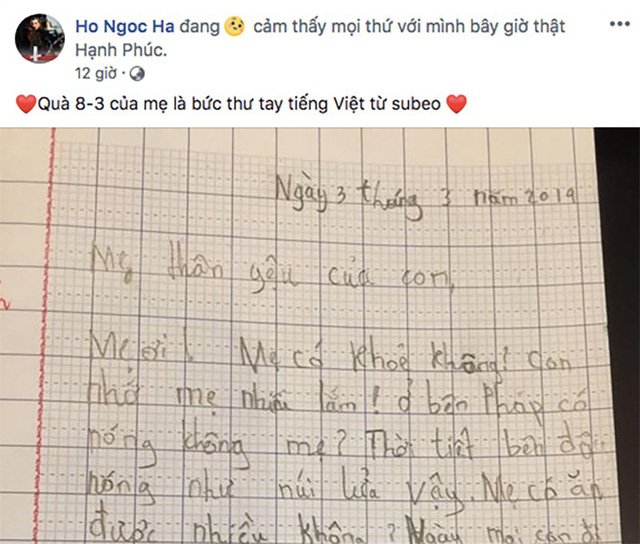 Ho Ngoc Ha đang 🥺 cảm thấy mọi thứ với mình bây giờ thật
Hạnh Phúc.
12 giờ ·
❤️Quà 8-3 của mẹ là bức thư tay tiếng Việt từ subeo ❤️
Ngày 3 tháng 3 năm 2019
Mẹ thân yêu của con,
Mẹ ơi! Mẹ có khoẻ không? Con
nhớ mẹ nhiều lắm! ở bên Pháp có
nóng không mẹ? Thời tiết bên
nóng như núi lửa vậy. Mẹ có ăn
được nhiều không? Ngày mai con đi